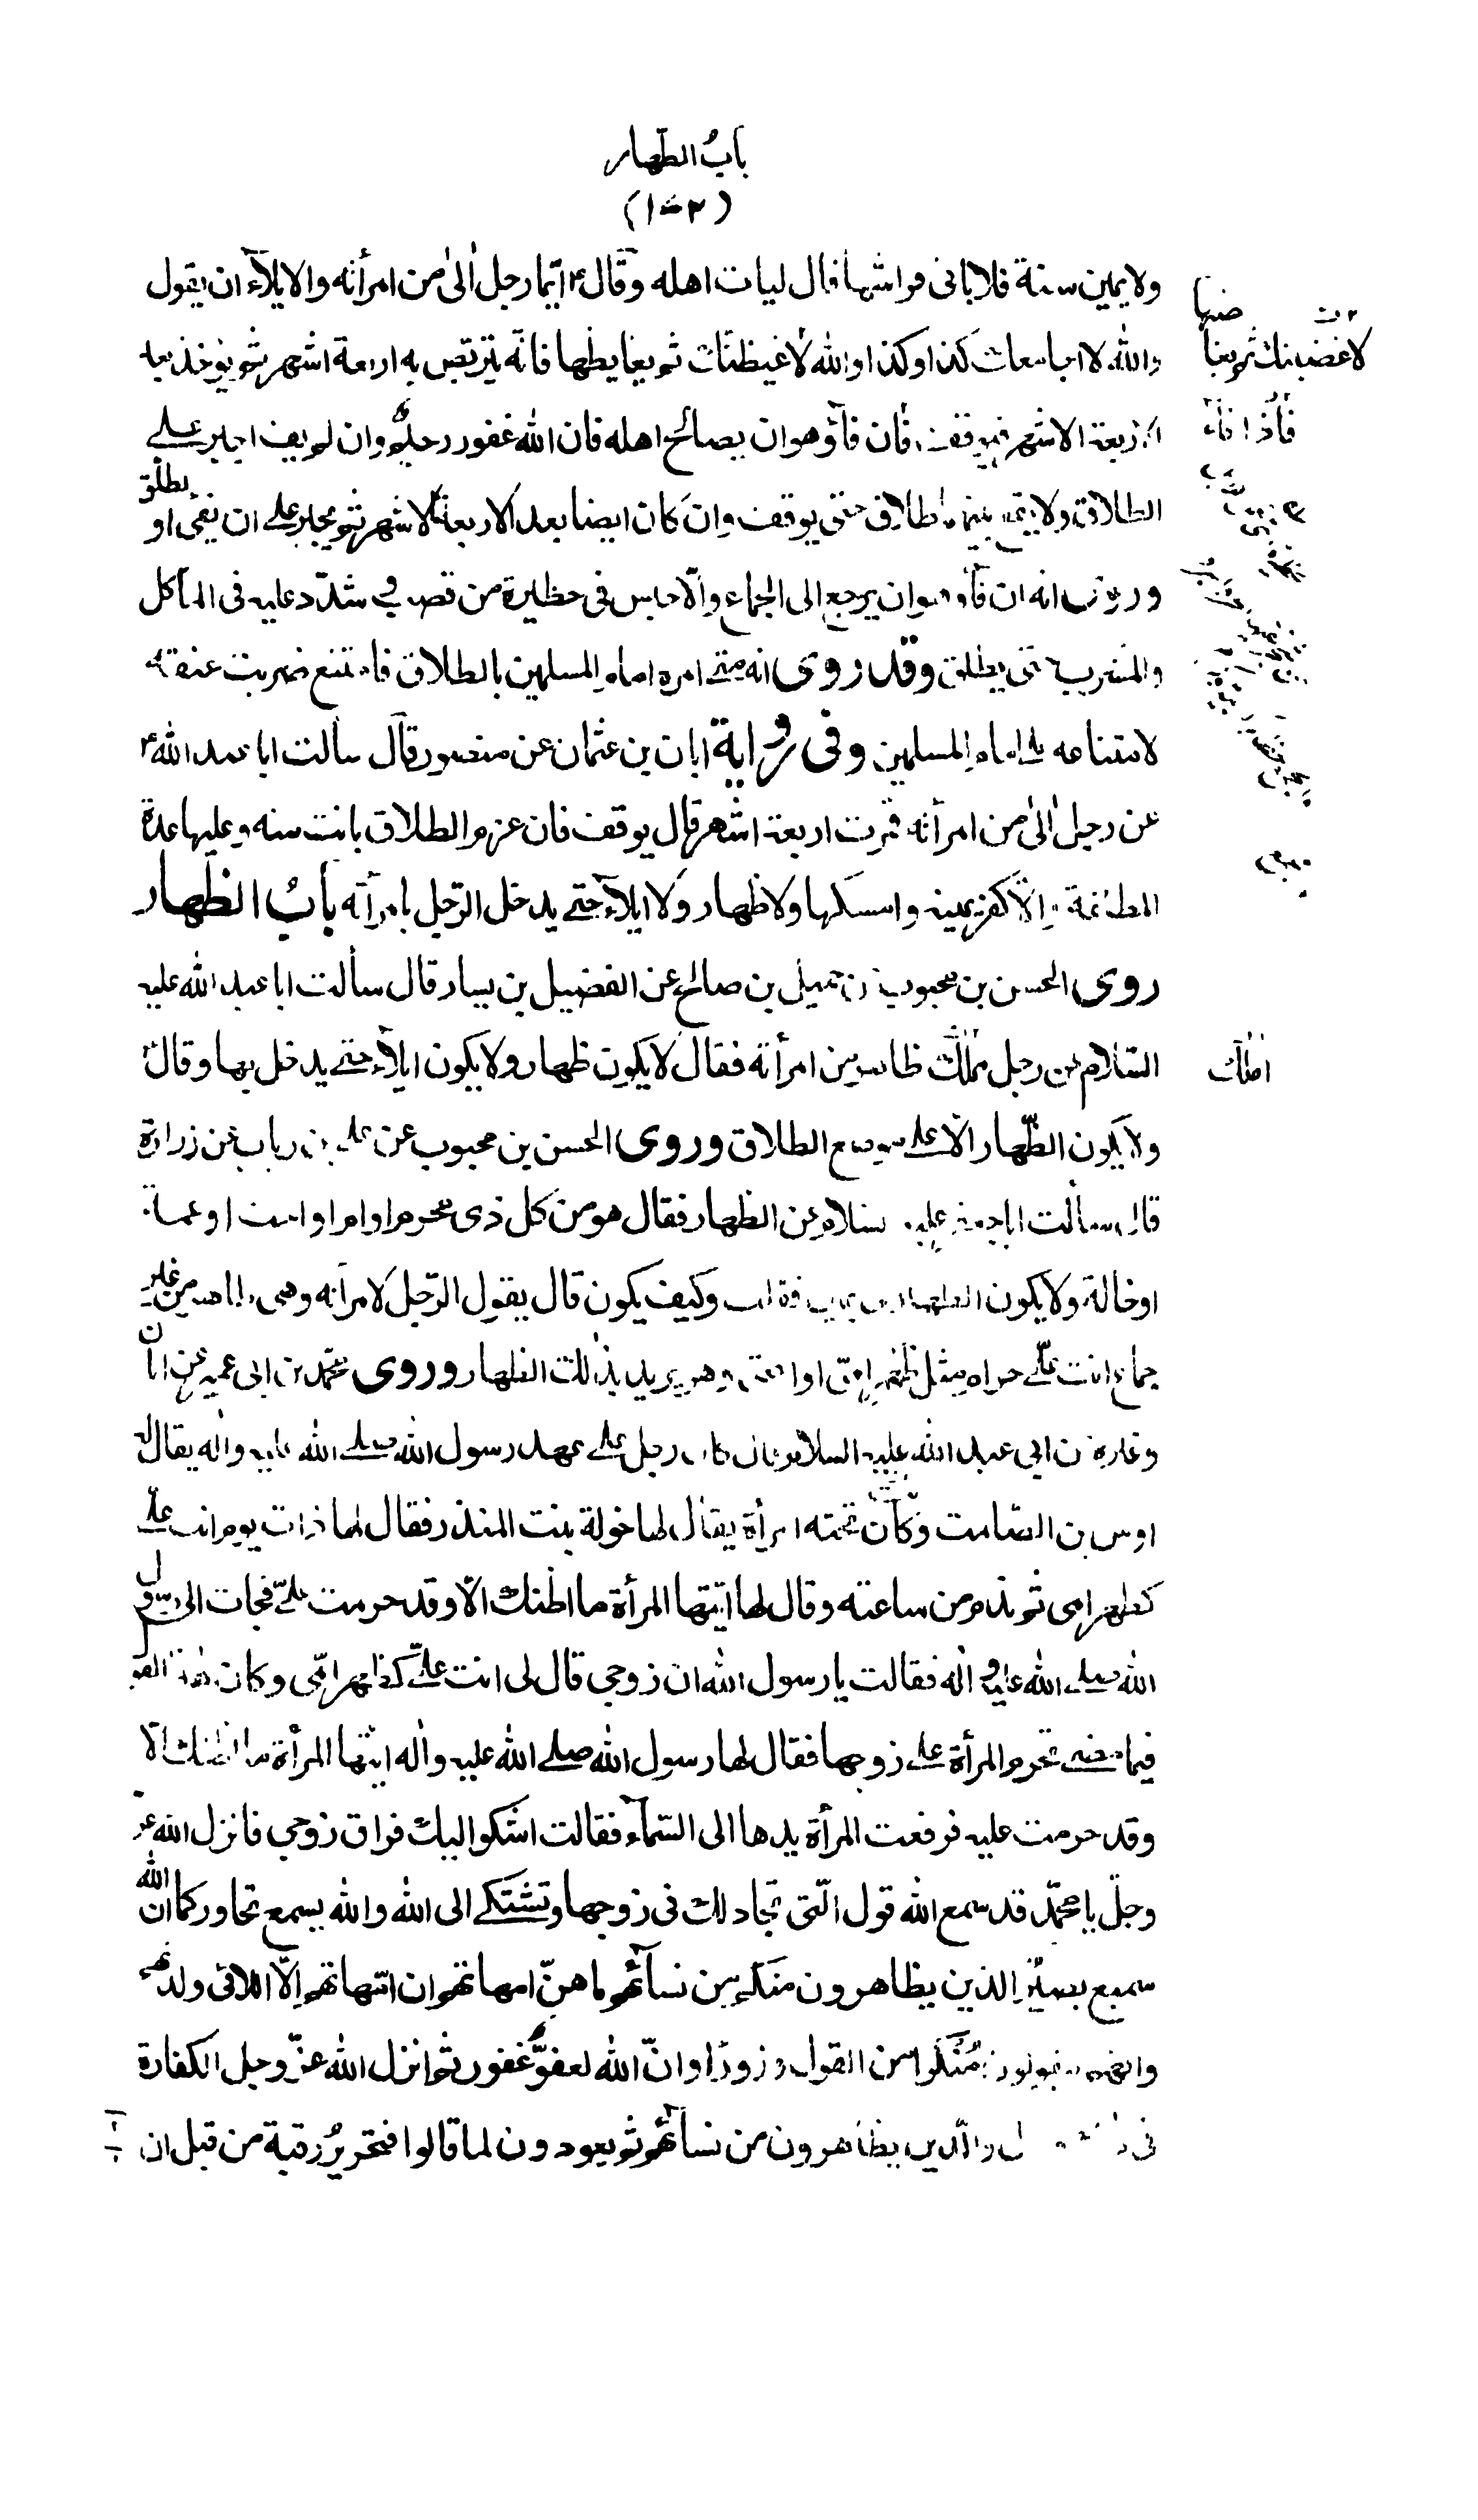 باب الظهار
ولا يمين سنة فلا ياتى فراشها قال ليات اهله وقال ع ايما رجل الى من امرأته والايلاء ان يقول
والله لا اجامعك كذا وكذا والله لاغيظنك ثم يغايظها فانه يتربص به اربعة اشهر ثم يؤخذ بعد
الاربعة الاشهر فيوقف فان فآء وهو ان يصالح اهله فان الله غفور رحيم وان لم يف اجبر على
الطلاق ولا يقع بينهما طلاق حتى يوقف وان كان ايضا بعد الاربعة الاشهر ثم يجبر على ان يفئ او يطلق
وروى انه ان فآء وهو ان يرجع الى الجماع والا حبس فى حظيرة من قصب وشدد عليه فى المأكل
والمشرب حتى يطلق وقد روى انه متى امره امام المسلمين بالطلاق فامتنع ضربت عنقه
لامتناعه على امام المسلمين وفى رواية ابان بن عثمان عن منصور قال سألت ابا عبد الله ع
عن رجل الى من امرأته فمرت اربعة اشهر قال يوقف فان عزم الطلاق بانت منه وعليها عدة
المطلقة والا كفر يمينه وامسكها ولا ظهار ولا ايلاء حتى يدخل الرجل بامرأته باب الظهار
روى الحسن بن محبوب عن جميل بن صالح عن الفضيل بن يسار قال سألت ابا عبد الله عليه
السلام عن رجل مملك ظاهر من امرأته فقال لا يكون ظهار ولا يكون ايلاء حتى يدخل بها وقال
ولا يكون الظهار الا على موضع الطلاق وروى الحسن بن محبوب عن على بن رباب عن زرارة
قال سألت ابا جعفر عليه السلام عن الظهار فقال هو من كل ذى محرم او ام او اخت او عمة
او خالة ولا يكون الظهار فى يمين فقلت وكيف يكون قال يقول الرجل لامرأته وهى طاهر من غير
جماع انت على حرام مثل ظهر امى او اختى وهو يريد بذلك الظهار وروى محمد بن ابى عمير عن ابان
وغيره عن ابى عبد الله عليه السلام قال كان رجل على عهد رسول الله صلى الله عليه واله يقال له
اوس بن الصامت وكان تحته امرأة يقال لها خولة بنت المنذر فقال لها ذات يوم انت على
كظهر امى ثم ندم من ساعته وقال لها ايتها المرأة ما اظنك الا وقد حرمت على فجاءت الى رسول
الله صلى الله عليه واله فقالت يا رسول الله ان زوجى قال لى انت على كظهر امى وكان هذا القول
فيما مضى تحرم المرأة على زوجها فقال لها رسول الله صلى الله عليه واله ايتها المرأة ما اظنك الا
وقد حرمت عليه فرفعت المرأة يدها الى السماء فقالت اشكو اليك فراق زوجى فانزل الله عز
وجل يا محمد قد سمع الله قول التى تجادلك فى زوجها وتشتكى الى الله والله يسمع تحاوركما ان الله
سميع بصير الذين يظاهرون منكم من نسائهم ما هن امهاتهم ان امهاتهم الا اللائى ولدنهم
وانهم ليقولون منكرا من القول وزورا وان الله لعفو غفور ثم انزل الله عز وجل الكفارة
فى ذلك فقال والذين يظاهرون من نسائهم ثم يعودون لما قالوا فتحرير رقبة من قبل ان
لاغضبنك ثم يغاضبها
فاذا فاء
املك